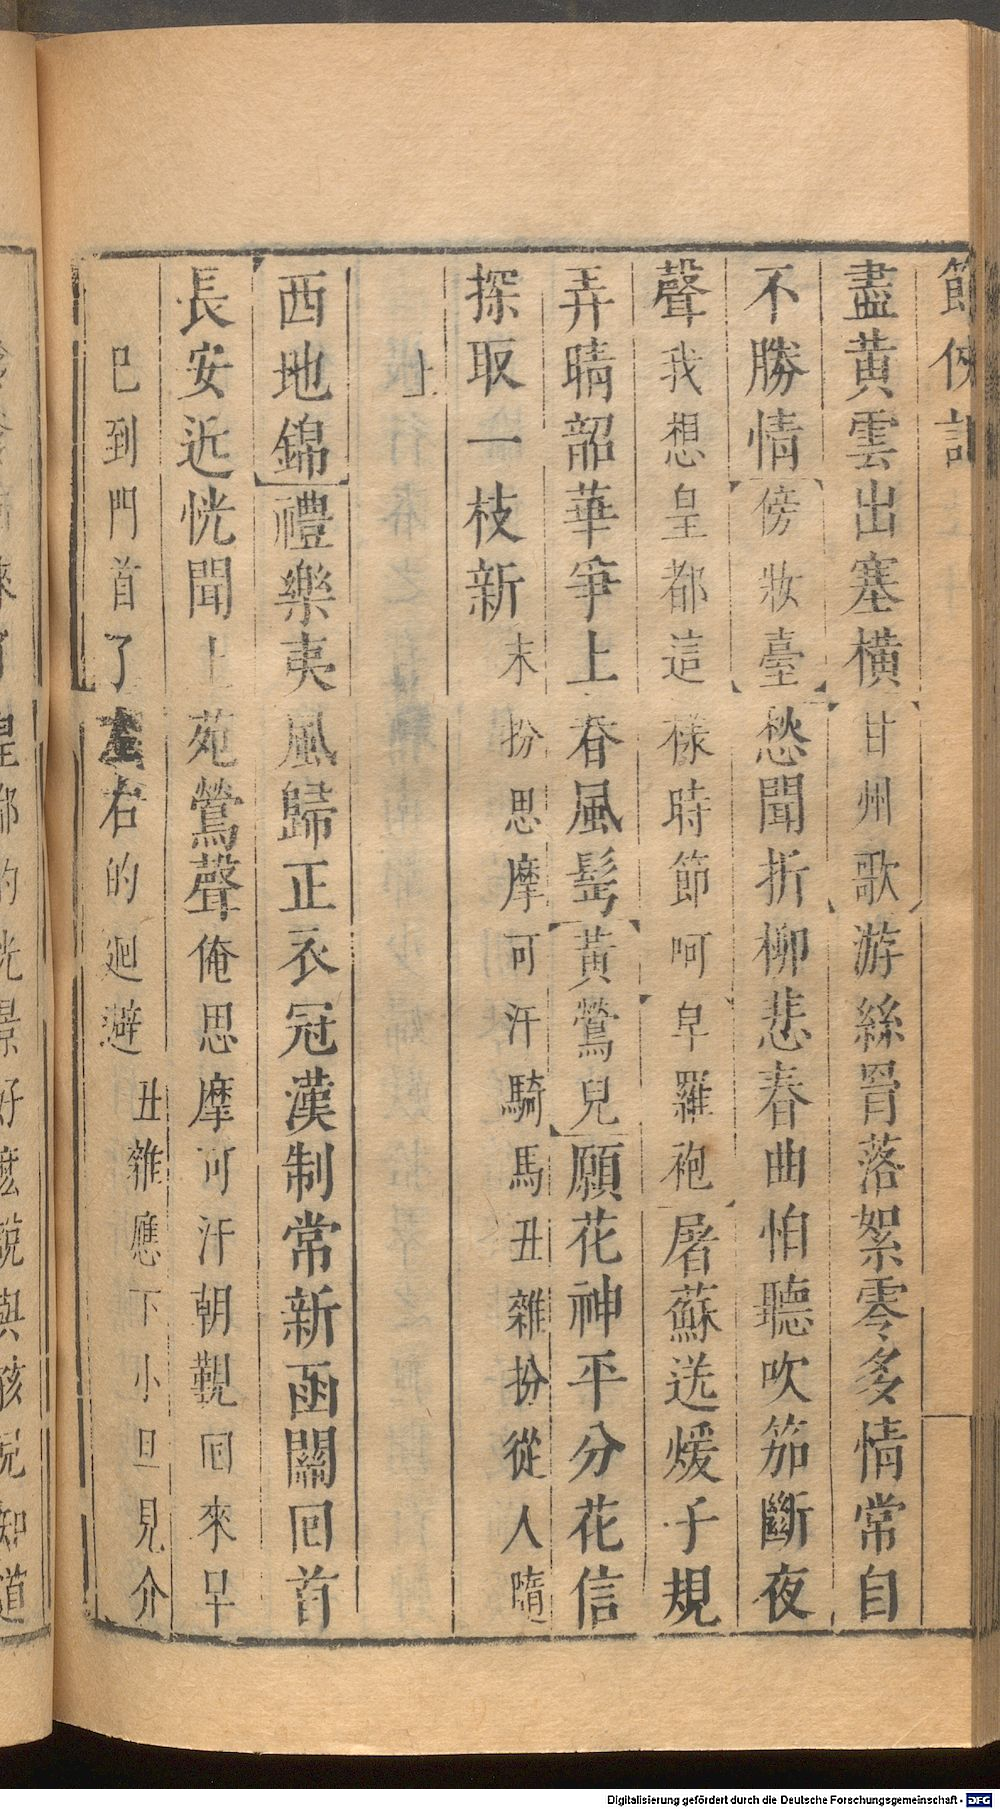 節俠記
盡黃雲出塞橫甘州歌游絲罥落絮零多情常自
不勝情傍妝臺愁聞折柳悲春曲怕聽吹笳斷夜
聲我想皇都這樣時節呵皁羅袍屠蘇送煖子規
弄晴韶華爭上春風髩黃鶯兒願花神平分花信
探取一枝新末扮思摩可汗騎馬丑雜扮從人隨
上
西地錦禮樂夷風歸正衣冠漢制常新函關回首
長安近恍聞上苑鶯聲俺思摩可汗朝覲回來早
已到門首了左右的迴避丑雜應下小旦見介
Digitalisierung gefördert durch die Deutsche Forschungsgemeinschaft - DFG